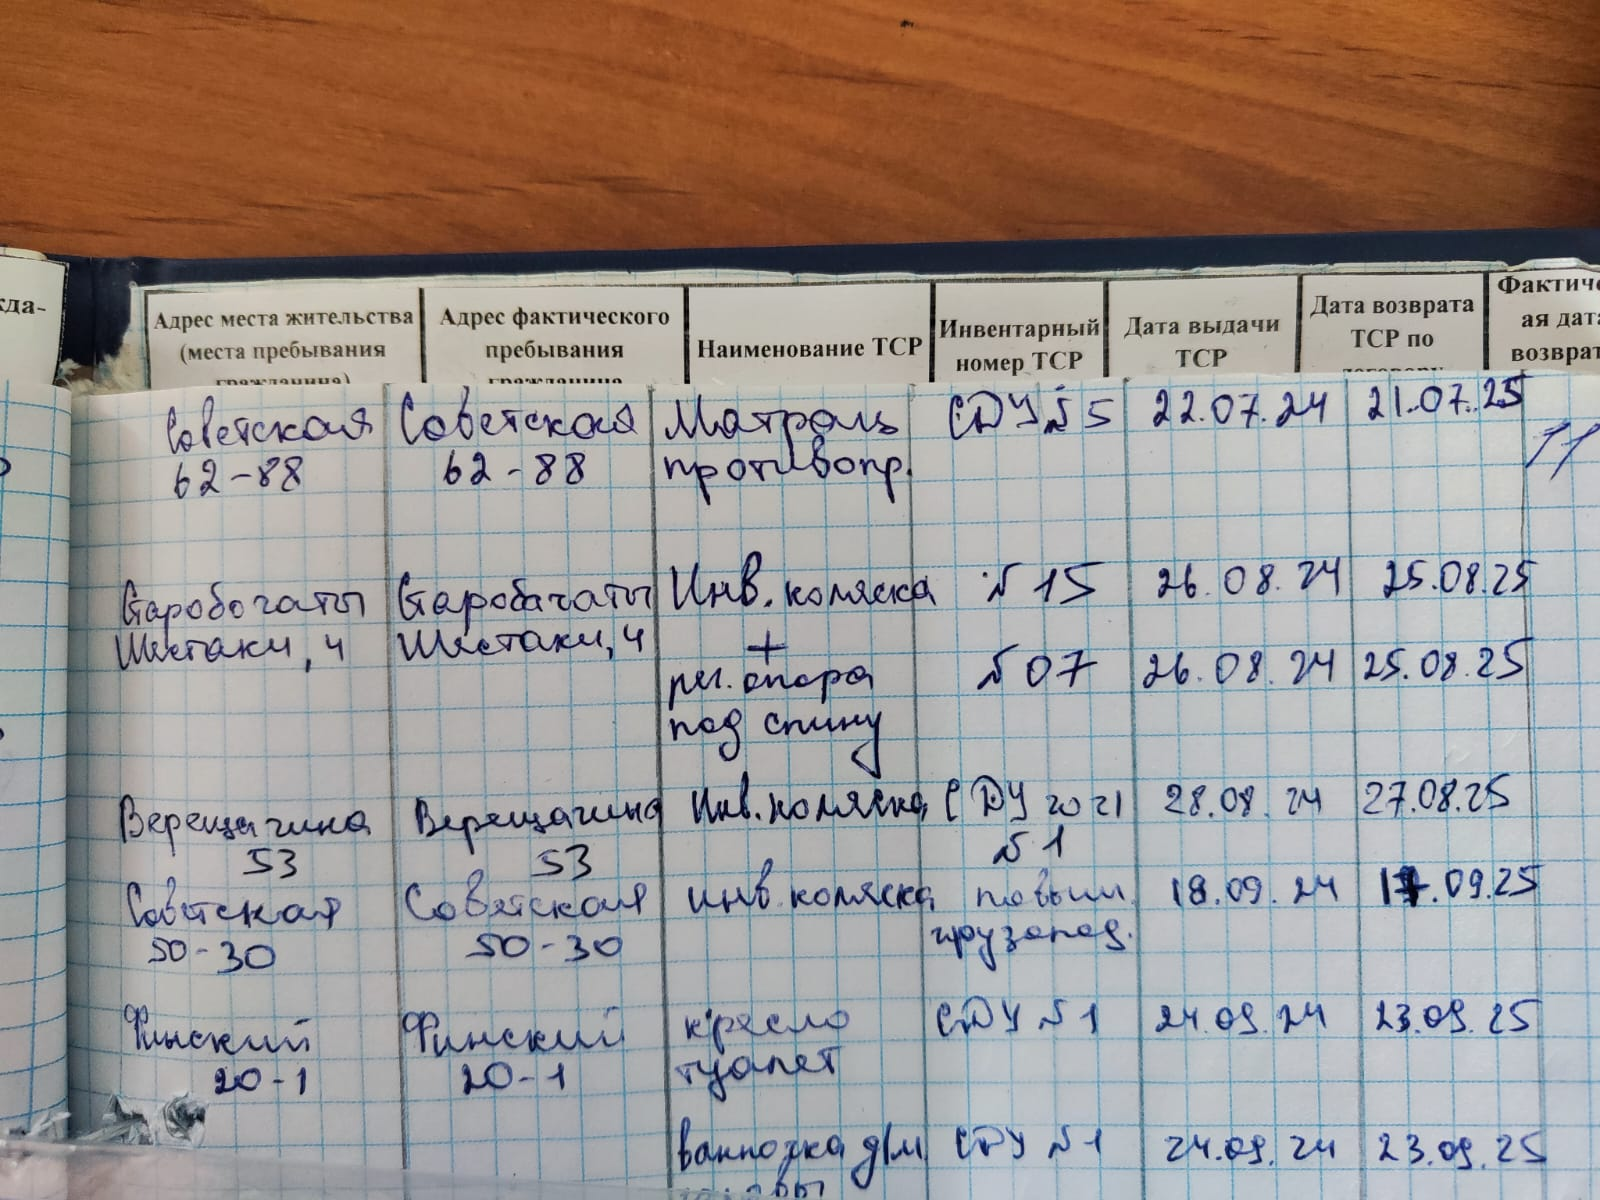 кда-
Адрес места жительства
(места пребывания
гражданина)
Адрес фактического
пребывания
гражданина
Наименование ТСР
Инвентарный
номер ТСР
Дата выдачи
ТСР
Дата возврата
ТСР по
договору
Фактиче
ая дата
возврат
Советская
62-88
Советская
62-88
Матрац
противопр.
СДУ №5
22.07.24
21.07.25
11
Старобогаты
Шестаки, 4
Старобагаты
Шестаки, 4
Инв. коляска
+
рег. опора
под спину
№ 15
№ 07
26.08.24
26.08.24
25.08.25
25.08.25
Верещагина
53
Верещагина
53
Инв. коляска
СДУ 2021
№ 1
28.08.24
27.08.25
Советская
50-30
Советская
50-30
инв. коляска
повыш.
грузопод.
18.09.24
17.09.25
Финский
20-1
Финский
20-1
кресло
туалет
СДУ №1
24.09.24
23.09.25
ванночка д/м
СДУ №1
24.09.24
23.09.25